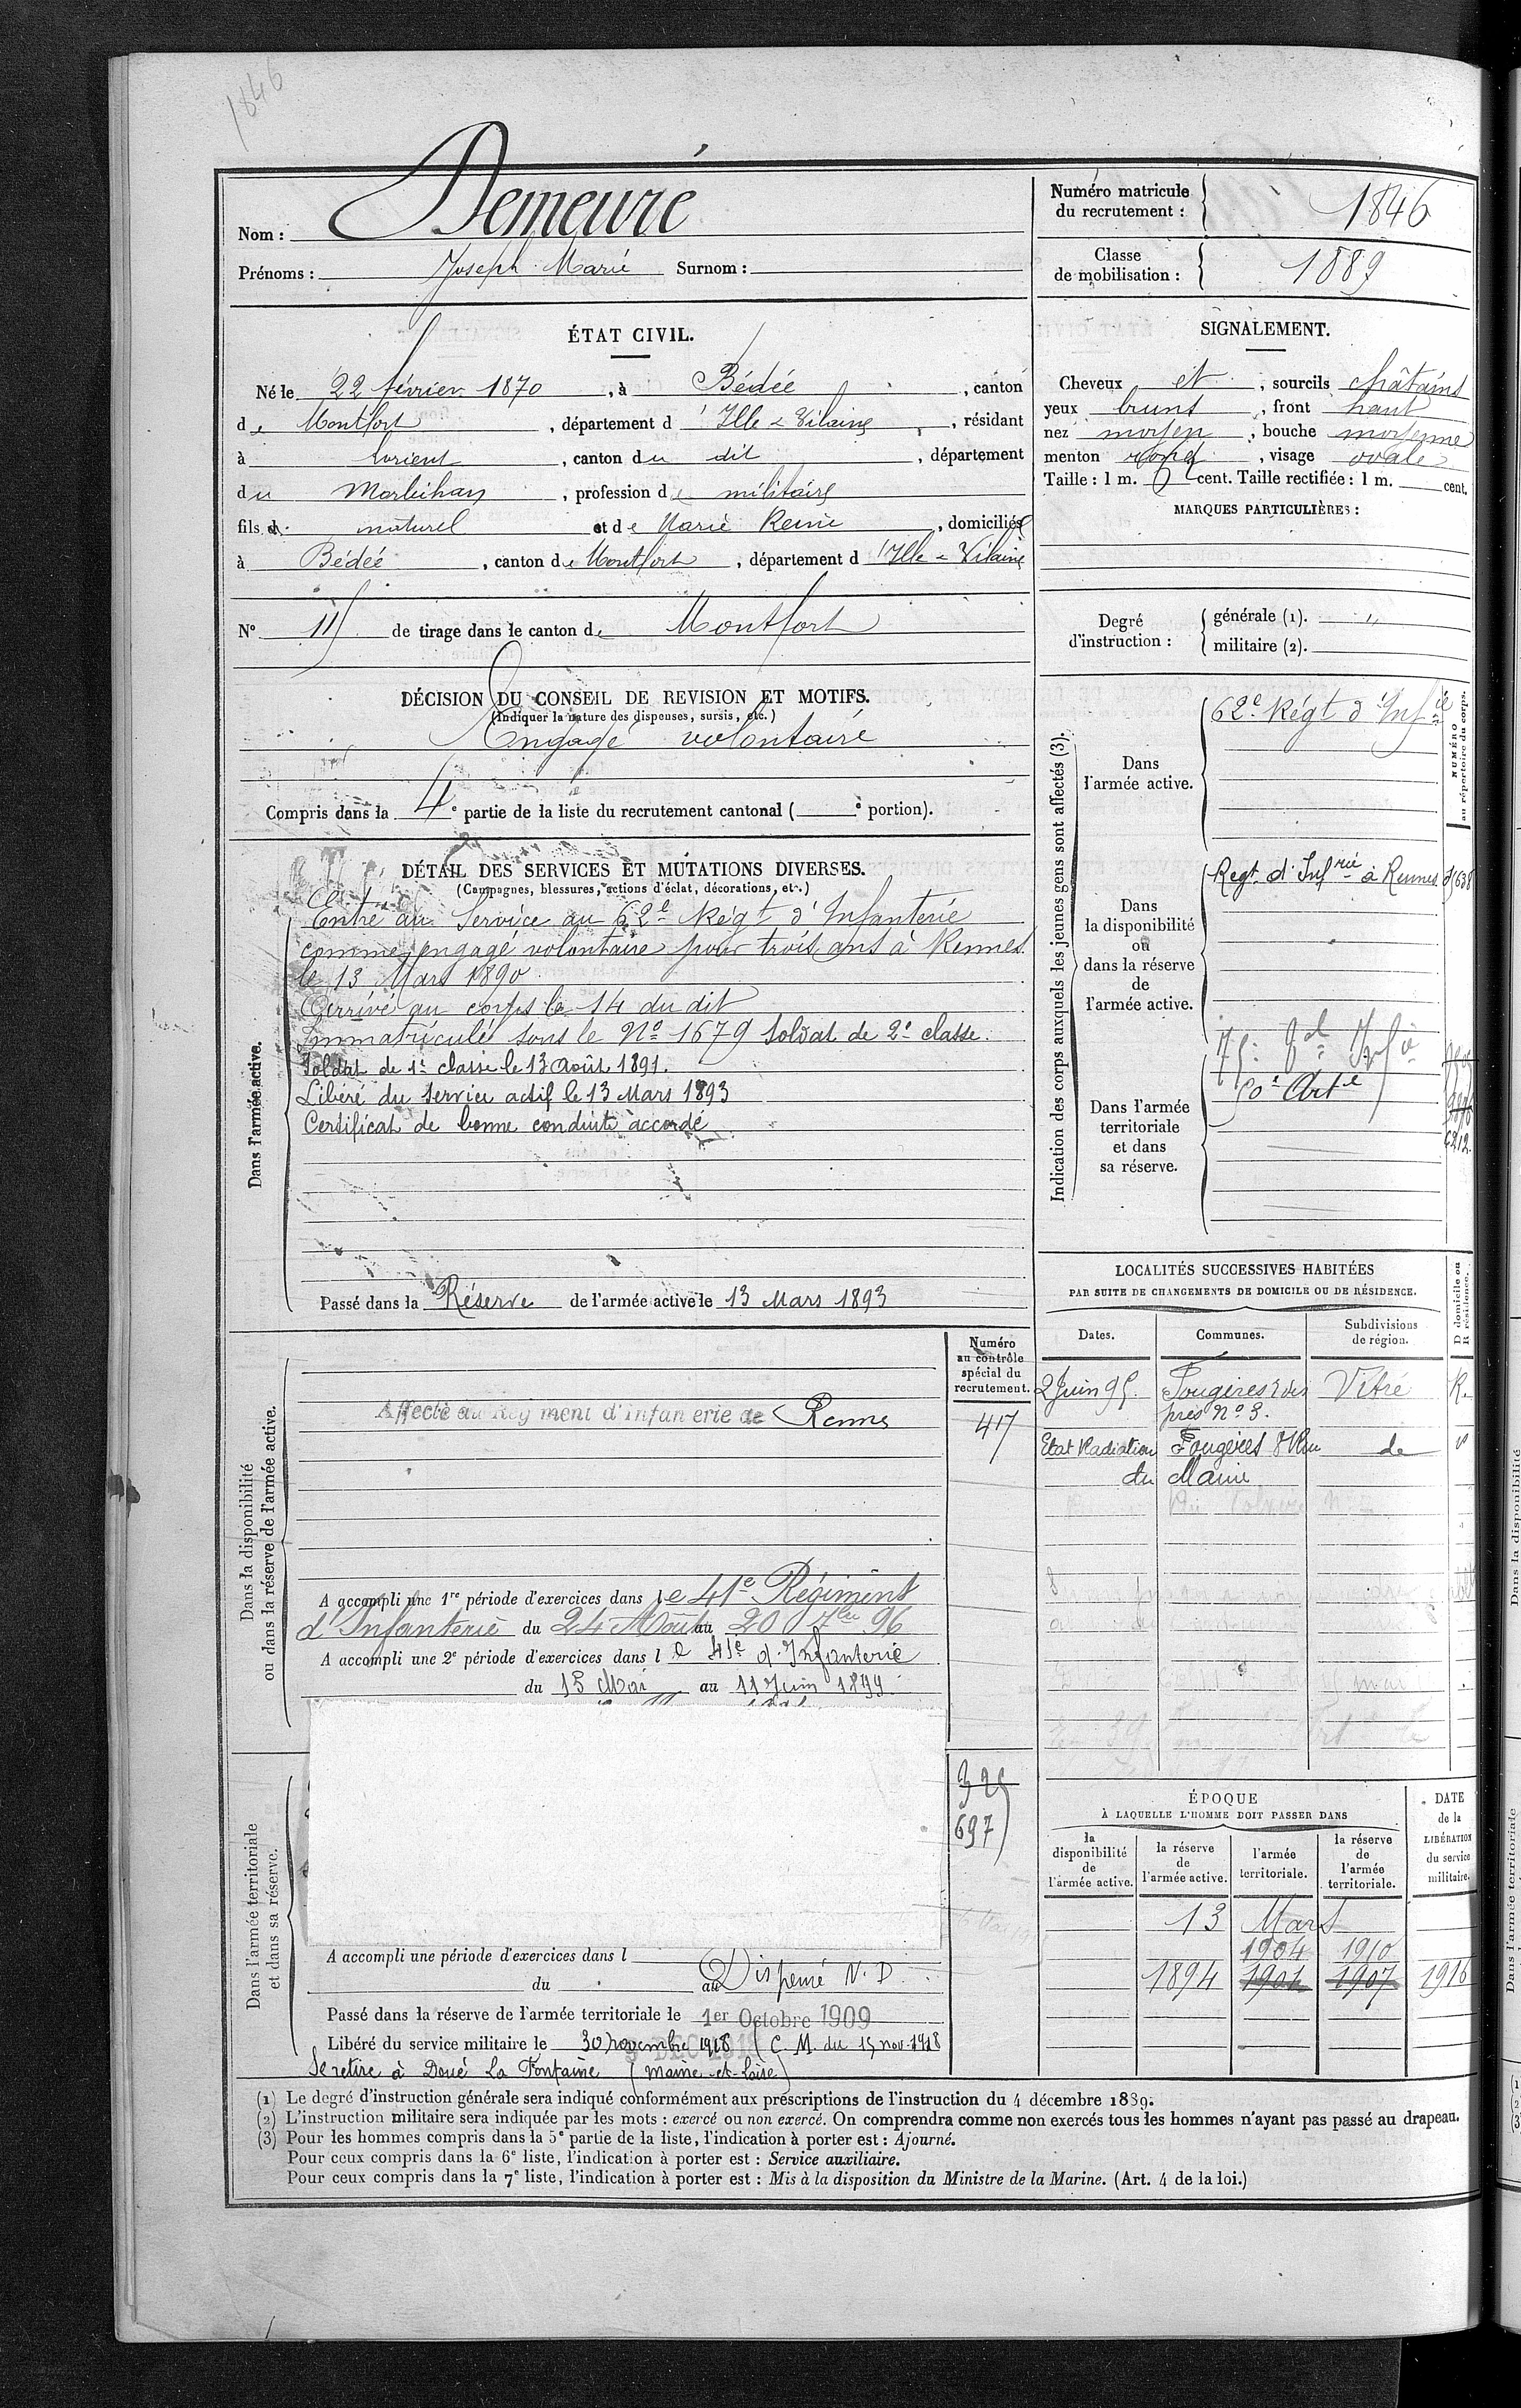 1846
Nom : Demeuré
Prénoms : Joseph Marie Surnom :
Numéro matricule
du recrutement : 1846
Classe
de mobilisation : 1889
ÉTAT CIVIL.
Né le 22 février 1870, à Bédée, canton
de Montfort, département d'Ille & Vilaine, résidant
à Lorient, canton du dit, département
du Morbihan, profession de militaire
fils d. naturel et de Marie Reine, domiciliés
à Bédée, canton de Montfort, département d'Ille & Vilaine
N° 115 de tirage dans le canton de Montfort
DÉCISION DU CONSEIL DE REVISION ET MOTIFS.
(Indiquer la nature des dispenses, sursis, etc.)
Engagé volontaire
Compris dans la 4e partie de la liste du recrutement cantonal ( e portion).
SIGNALEMENT.
Cheveux et, sourcils châtains
yeux bruns, front haut
nez moyen, bouche moyenne
menton rond, visage ovale
Taille : 1 m. cent. Taille rectifiée : 1 m. cent.
MARQUES PARTICULIÈRES :
Degré
d'instruction :
générale (1). "
militaire (2).
DÉTAIL DES SERVICES ET MUTATIONS DIVERSES.
(Campagnes, blessures, actions d'éclat, décorations, etc.)
Dans l'armée active.
Entré au Service au 62e Régt d'Infanterie
comme engagé volontaire pour trois ans à Rennes
le 13 Mars 1890
Arrivé au corps le 14 du dit
Immatriculé sous le No 1679 Soldat de 2e classe.
Soldat de 1e classe le 13 Août 1891.
Libéré du service actif le 13 Mars 1893
Certificat de bonne conduite accordé
Passé dans la Réserve de l'armée active le 13 Mars 1893
Indication des corps auxquels les jeunes gens sont affectés (3).
NUMÉRO
au répertoire du corps.
Dans
l'armée active.
62e Régt d'Infie
Dans
la disponibilité
ou
dans la réserve
de
l'armée active.
Regt d'Infrie à Rennes
Dans l'armée
territoriale
et dans
sa réserve.
75e
50e Artie
LOCALITÉS SUCCESSIVES HABITÉES
PAR SUITE DE CHANGEMENTS DE DOMICILE OU DE RÉSIDENCE.
Dates. Communes. Subdivisions
de région.
D domicile ou
R résidence.
2 Juin 95. Fougères r des Vitré R.
près No 3.
Etat Radiation Fougères 8 Rue de
du Maine
Dans la disponibilité
ou dans la réserve de l'armée active.
Numéro
au contrôle
spécial du
recrutement.
Affecté au Régiment d'infanterie de Rennes 417
A accompli une 1re période d'exercices dans le 41e Régiment
d'Infanterie du 24 Août au 20 7bre 96
A accompli une 2e période d'exercices dans le 41e d'Infanterie
du 15 Mai au 11 Juin 1899
325
697
Dans l'armée territoriale
et dans sa réserve.
A accompli une période d'exercices dans l
du au Dispensé N. D
Passé dans la réserve de l'armée territoriale le 1er Octobre 1909
Libéré du service militaire le 30 novembre 1918 (C. M. du 15 nov. 1918
Se retire à Doué La Fontaine (Maine-et-Loire)
ÉPOQUE
À LAQUELLE L'HOMME DOIT PASSER DANS
la
disponibilité
de
l'armée active.
la réserve
de
l'armée active.
l'armée
territoriale.
la réserve
de
l'armée
territoriale.
DATE
de la
LIBÉRATION
du service
militaire.
13 Mars
1904 1910
1894 1904 1907 1916
(1) Le degré d'instruction générale sera indiqué conformément aux prescriptions de l'instruction du 4 décembre 1889.
(2) L'instruction militaire sera indiquée par les mots : exercé ou non exercé. On comprendra comme non exercés tous les hommes n'ayant pas passé au drapeau.
(3) Pour les hommes compris dans la 5e partie de la liste, l'indication à porter est : Ajourné.
Pour ceux compris dans la 6e liste, l'indication à porter est : Service auxiliaire.
Pour ceux compris dans la 7e liste, l'indication à porter est : Mis à la disposition du Ministre de la Marine. (Art. 4 de la loi.)
Dans la disponibilité
Dans l'armée territoriale